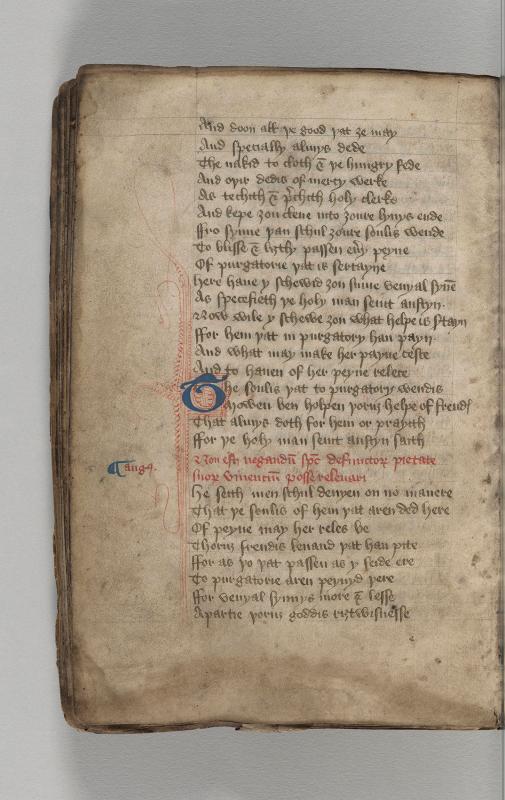 And doon all ye good yat ȝe may
And specially almys dede
The nakid to cloth & ye hungry fede
And oyir dedis of mercy werke
As techith & prechith holy clerke
And kepe ȝou clene into ȝoure lyuys ende
ffro synne yan schul ȝoure soulis wende
To blisse & liȝtly passen euery peyne
Of purgatorie yat is sertayne
here haue y schewid ȝou sūme venyal synē
As specefieth ye holy man seint austyn
Now wile y schewe ȝou what helpe is
ffor hem yat in purgatory han payn
And what may make her payne ceste
And to hauen of her peyne relece
The soulis yat to purgatory wendis
Mowen ben holpen yorw helpe of frendis
That almys doth for hem or prayith
ffor ye holy man seint austyn saith
augꝰ.
Non est negandū spc defunctoꝝ pietate
suoꝝ viuentiū posse releuari
he seith men schul denyen on no manere
That ye soulis of hem yat aren ded here
Of peyne may her reles be
Thorw frendis leuand yat han pite
ffor as yo yat passen as y seide ere
To purgatorie aren peynyd yere
ffor venyal synnys more & lesse
Apartie yorw goddis riȝtwisnesse